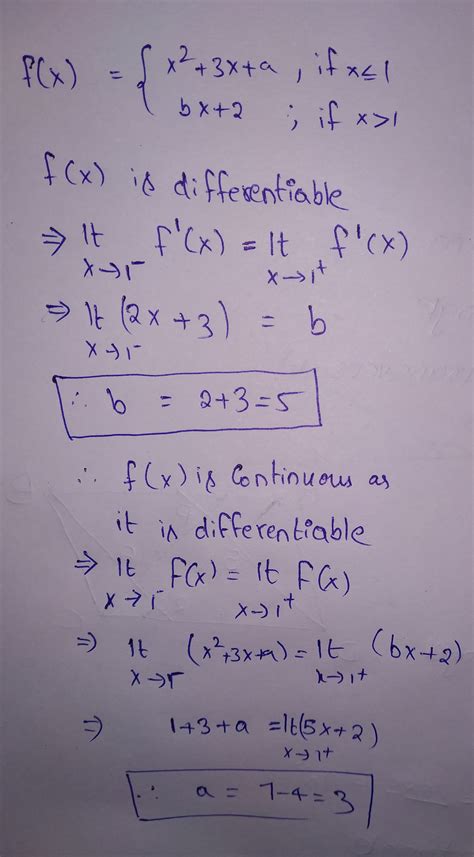 f(x) = { x²+3x+a , if x≤1
bx+2 ; if x>1
f(x) is differentiable
⇒ lt f'(x) = lt f'(x)
x→1⁻ x→1⁺
⇒ lt (2x+3) = b
x→1⁻
∴ b = 2+3=5
∴ f(x) is Continuous as
it is differentiable
⇒ lt f(x) = lt f(x)
x→1⁻ x→1⁺
⇒ lt (x²+3x+a) = lt (bx+2)
x→1⁻ x→1⁺
⇒ 1+3+a = lt(5x+2)
x→1⁺
∴ a = 7-4=3